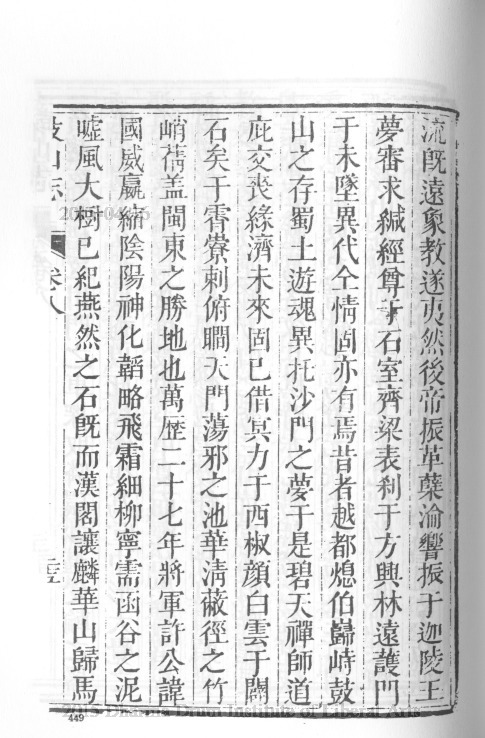 流既遠象教遂夷然後帝振革蘖淪響振于迦陵王
夢審求緘經尊于石室齊梁表刹于方輿林遠護門
于未墜異代仝情固亦有焉昔者越都熄伯巋峙鼓
山之存蜀土遊魂異托沙門之夢于是碧天禪師道
庇交喪緣濟未來固已借冥力于西椒顏白雲于閟
石矣于霄藔剌俯瞷天門蕩邪之池華清蔽徑之竹
峭蒨盖閩東之勝地也萬歷二十七年將軍許公諱
國威嬴縮陰陽神化韜略飛霜細柳寧需函谷之泥
噓風大樹已紀燕然之石既而漢閣讓麟華山歸馬
鼓山志 卷八
449